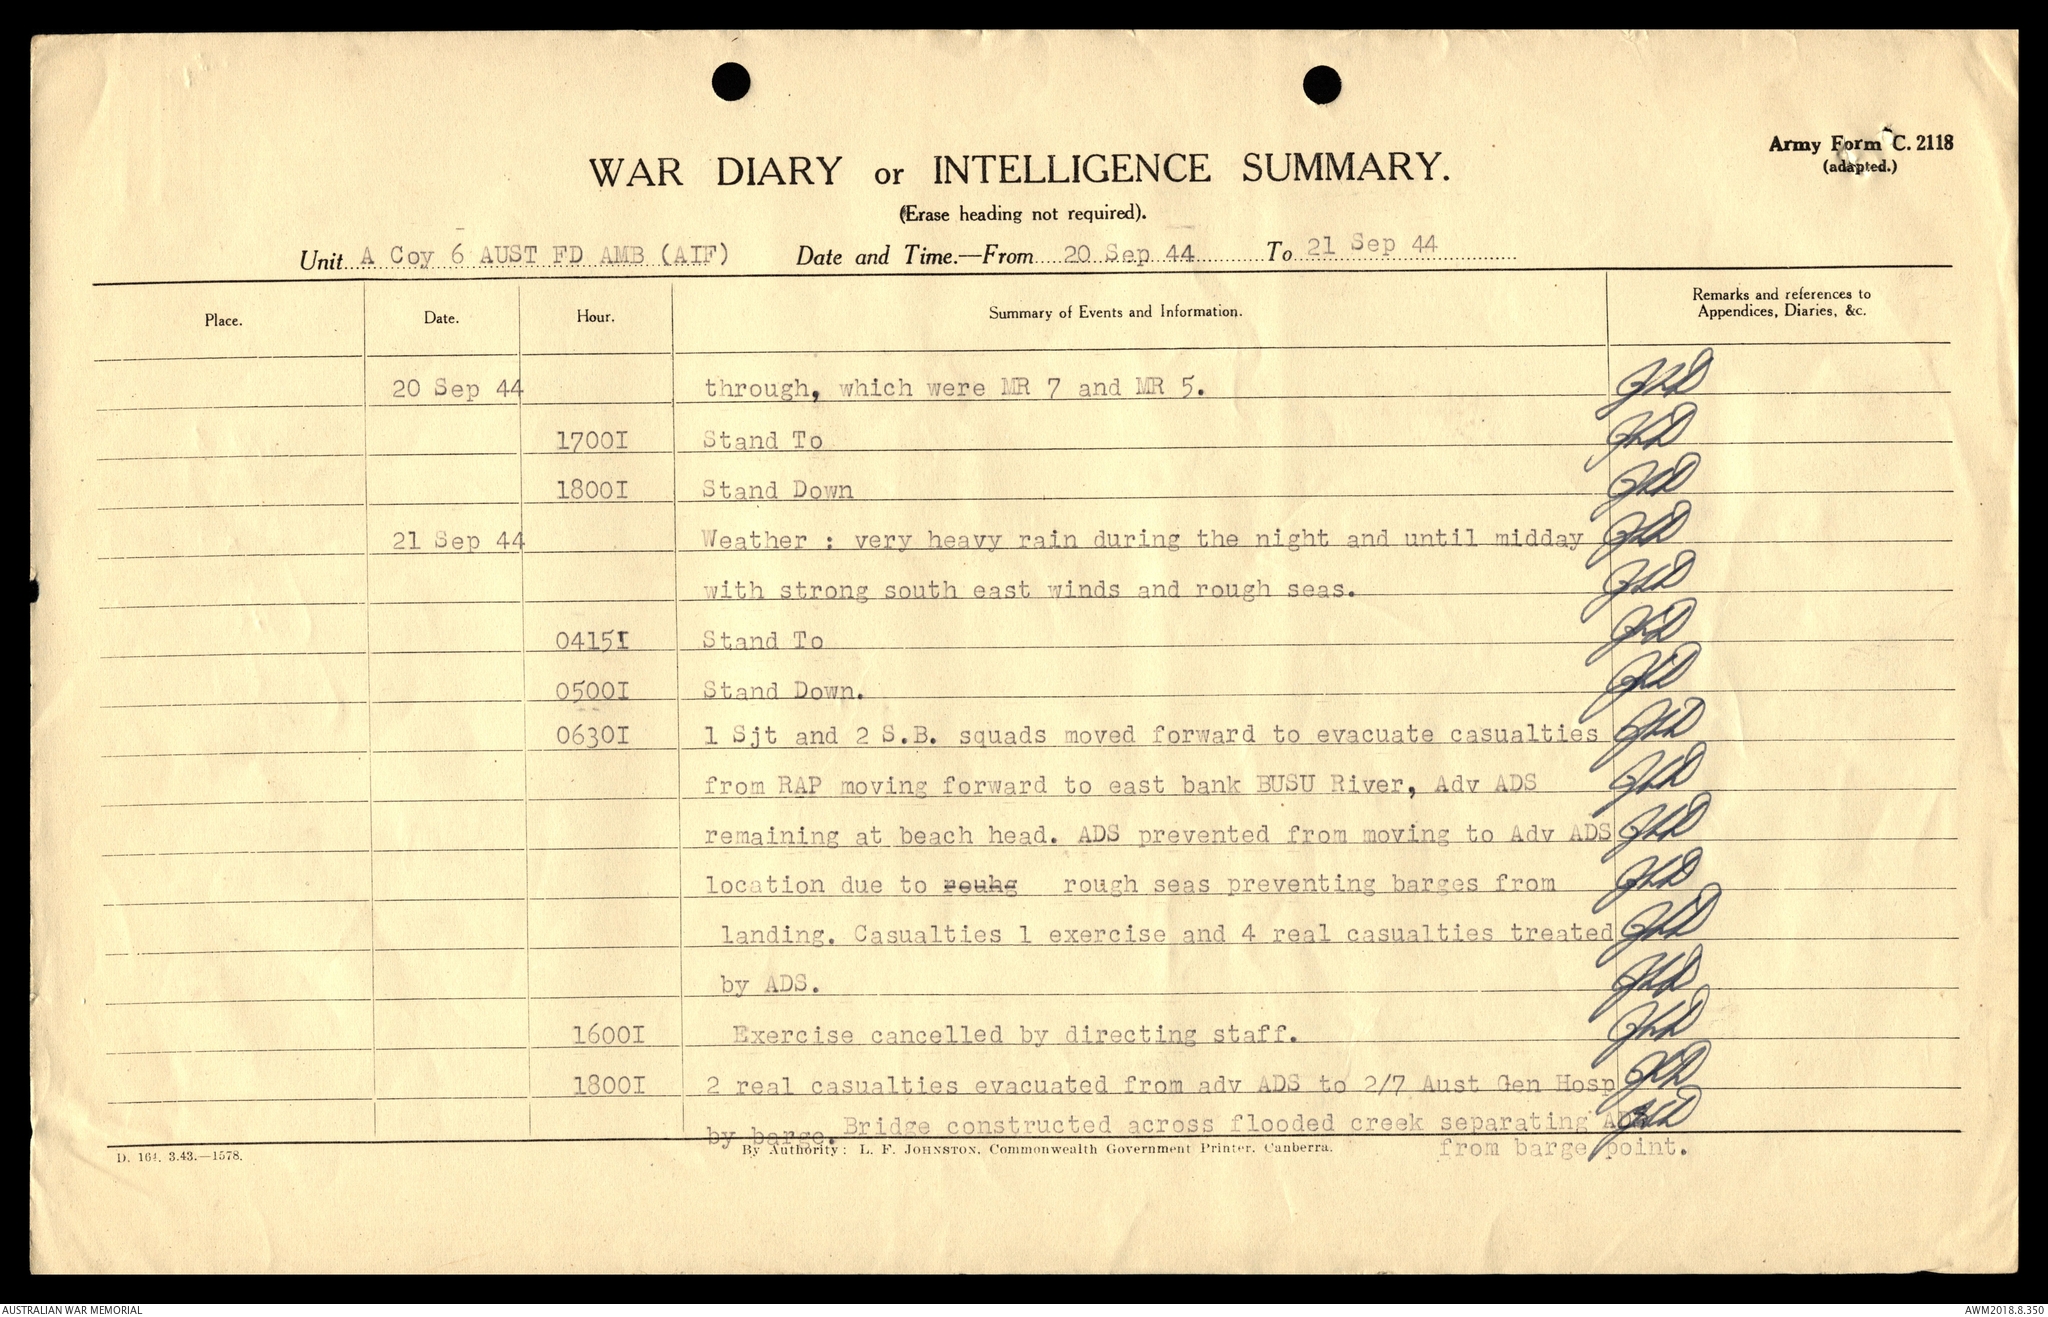 Army Form C. 2118
(adapted.)
WAR DIARY or INTELLIGENCE SUMMARY.
(Erase heading not required).
Unit A Coy 6 AUST FD AMB (AIF) Date and Time.—From 20 Sep 44 To 21 Sep 44
Place. Date. Hour. Summary of Events and Information. Remarks and references to
Appendices, Diaries, &c.
20 Sep 44 through, which were MR 7 and MR 5.
1700I Stand To
1800I Stand Down
21 Sep 44 Weather : very heavy rain during the night and until midday
with strong south east winds and rough seas.
0415I Stand To
0500I Stand Down.
0630I 1 Sjt and 2 S.B. squads moved forward to evacuate casualties
from RAP moving forward to east bank BUSU River, Adv ADS
remaining at beach head. ADS prevented from moving to Adv ADS
location due to reuhg rough seas preventing barges from
landing. Casualties 1 exercise and 4 real casualties treated
by ADS.
1600I Exercise cancelled by directing staff.
1800I 2 real casualties evacuated from adv ADS to 2/7 Aust Gen Hosp
by barge. Bridge constructed across flooded creek separating ADS
from barge point.
D. 164. 3.43.—1578. By Authority: L. F. JOHNSTON, Commonwealth Government Printer, Canberra.
AUSTRALIAN WAR MEMORIAL AWM2018.8.350